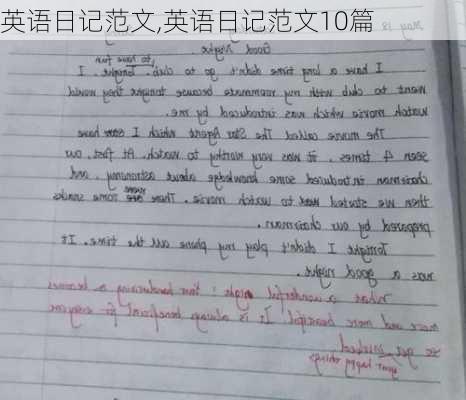 英语日记范文,英语日记范文10篇
May 18
Good Night
to have fun
I have a long time didn't go to club. Tonight, I
went to club with my roommate because tonight they would
watch movie which was introduced by me.
The movie called The Star Agent which I have
seen 4 times. it was very worthy to watch. At first, our
chairman introduced some knowledge about astronomy, and
then we started to watch movie. There were some snacks
prepared by our chairman.
Tonight I didn't play my phone all the time. It
was a good night.
What a wonderful night! Your handwriting is
more and more beautiful. It is always beneficial for everyone
your happy things